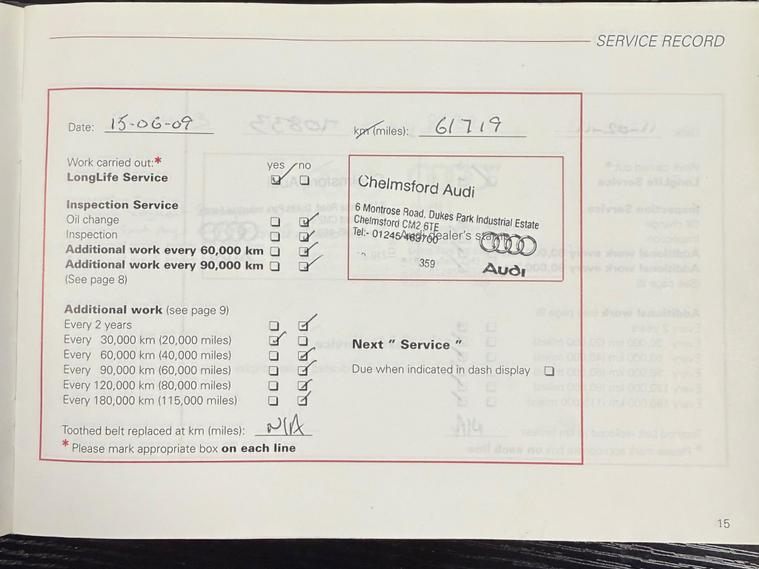 SERVICE RECORD
Date: 15-06-09
km(miles): 61719
Work carried out:*
yes no
LongLife Service
Inspection Service
Oil change
Inspection
Additional work every 60,000 km
Additional work every 90,000 km
(See page 8)
Chelmsford Audi
6 Montrose Road, Dukes Park Industrial Estate
Chelmsford CM2 6TE
Tel:- 01245
Audi dealer's
359
Audi
Additional work (see page 9)
Every 2 years
Every 30,000 km (20,000 miles)
Every 60,000 km (40,000 miles)
Every 90,000 km (60,000 miles)
Every 120,000 km (80,000 miles)
Every 180,000 km (115,000 miles)
Next " Service "
Due when indicated in dash display
Toothed belt replaced at km (miles): N/A
* Please mark appropriate box on each line
15